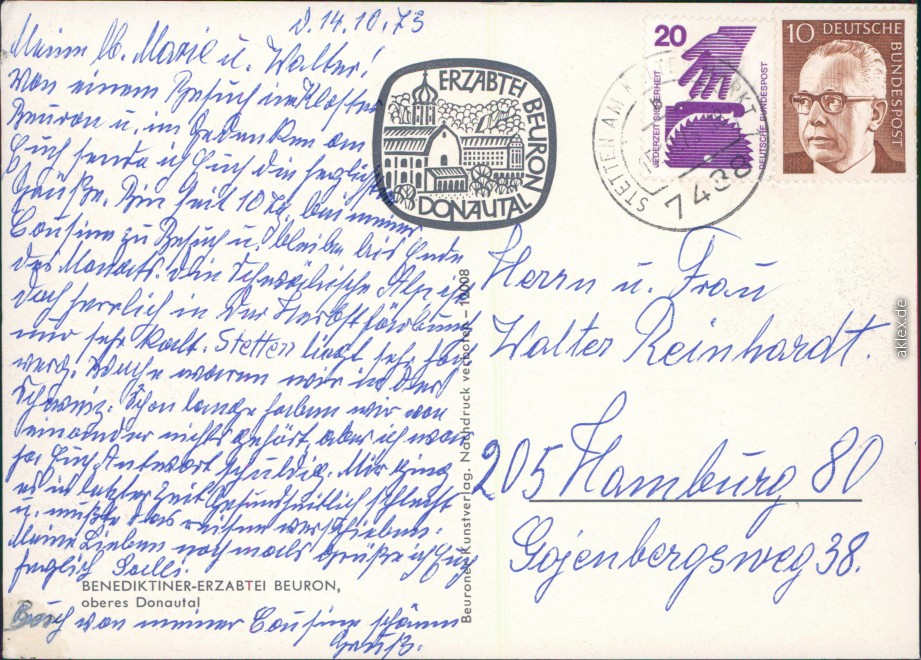 d. 14.10.73
Meine lb. Marie u. Walter!
Von einem Besuch im Kloster
Beuron u. im Gedenken an
Euch sende ich Euch die herzlichsten
Grüße. Bin seit 10 Tg. bei meiner
Cousine zu Besuch u. bleibe bis Ende
des Monats. Die Schwäbische Alp ist
doch herrlich in der Herbstfärbung
nur sehr kalt. Stetten liegt sehr hoch
waren wir in der
Schweiz. Schon lange haben wir von
einander nichts gehört, aber ich war
ja Euch Antwort schuldig. Mir ging
es in letzter Zeit Gesundheitlich schlecht
u. mußte das reisen verschieben.
Meine Lieben nochmals grüße ich Euch
herzlich
BENEDIKTINER-ERZABTEI BEURON,
oberes Donautal
Auch von meiner Cousine schönen
Gruß.
Beuroner Kunstverlag. Nachdruck verboten – 10008
ERZABTEI BEURON
DONAUTAL
STETTEN AM KALTEN MARKT
7488
20
JEDERZEIT SICHERHEIT
DEUTSCHE BUNDESPOST
10 DEUTSCHE
BUNDESPOST
Herrn u. Frau
Walter Reinhardt.
205 Hamburg 80
Gojenbergsweg 38.
aklex.de